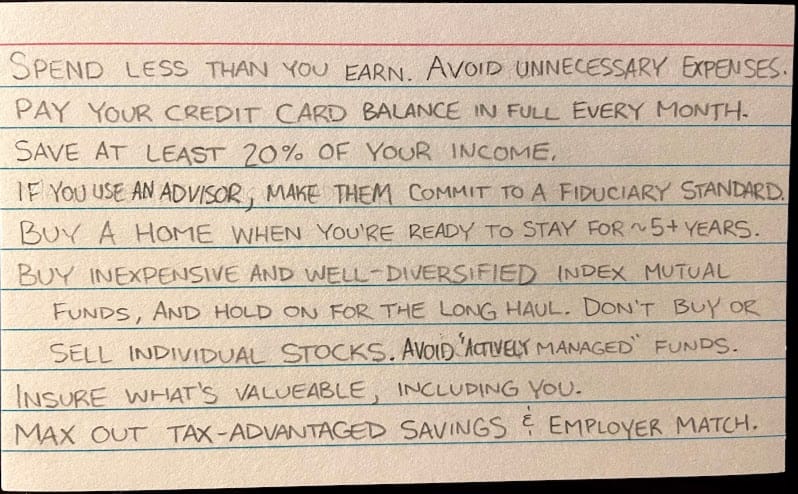 SPEND LESS THAN YOU EARN. AVOID UNNECESSARY EXPENSES.
PAY YOUR CREDIT CARD BALANCE IN FULL EVERY MONTH.
SAVE AT LEAST 20% OF YOUR INCOME.
IF YOU USE AN ADVISOR, MAKE THEM COMMIT TO A FIDUCIARY STANDARD.
BUY A HOME WHEN YOU'RE READY TO STAY FOR ~5+ YEARS.
BUY INEXPENSIVE AND WELL-DIVERSIFIED INDEX MUTUAL
FUNDS, AND HOLD ON FOR THE LONG HAUL. DON'T BUY OR
SELL INDIVIDUAL STOCKS. AVOID "ACTIVELY MANAGED" FUNDS.
INSURE WHAT'S VALUEABLE, INCLUDING YOU.
MAX OUT TAX-ADVANTAGED SAVINGS & EMPLOYER MATCH.